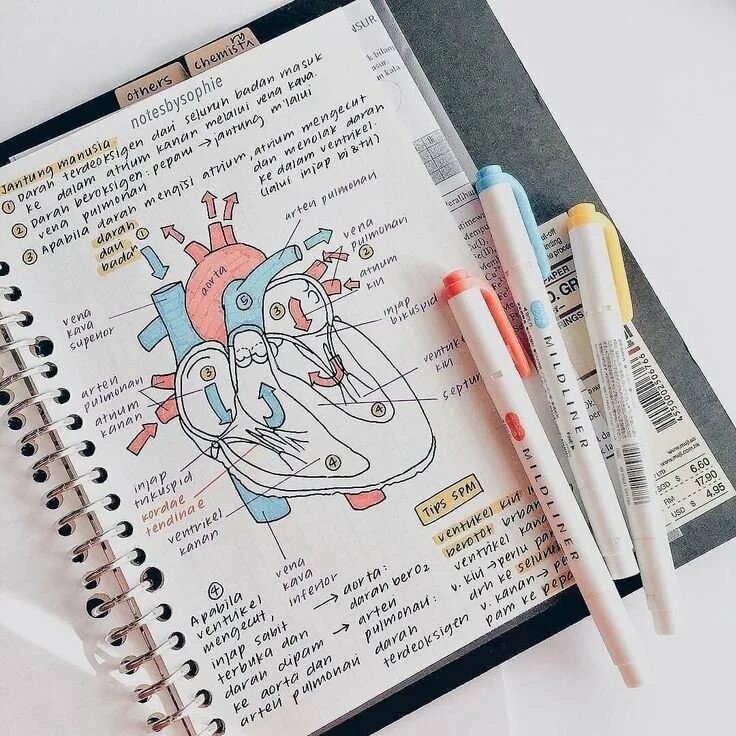 others
chemistry
notesbysophie
Jantung manusia.
① Darah terdeoksigen dari seluruh badan masuk
ke dalam atrium kanan melalui vena kava.
② Darah beroksigen: pepanu → jantung m'lalui
vena pulmonan
③ Apabila darah mengisi atrium, atrium mengecut
dan menolak darah
ke dalam ventrikel.
(lalui injap bi & tu)
darah
dari
badan
①
arten pulmonan
vena
pulmonan
②
atrium
kiri
injap
bikuspid
ventrikel
kiri
septum
aorta
⑤
③
③
④
④
vena
kava
superior
arten
pulmonan
atrium
kanan
injap
trikuspid
kordae
tendinae
ventrikel
kanan
vena
kava
inferior
④
Apabila
ventrikel
mengecut,
injap sabit
terbuka dan
darah dipam
ke aorta dan
arten pulmonan
→ aorta:
darah berO₂
→ arten
pulmonan:
darah
terdeoksigen
Tips SPM
ventrikel kiri
berotot
ventrikel kanan
v. kiri → perlu
drh ke seluruh
v. kanan →
pam ke
MILDLINER
MILDLINER
MILDLINER
PAPER
4550002506766
6.60
RM 17.90
USD 4.95